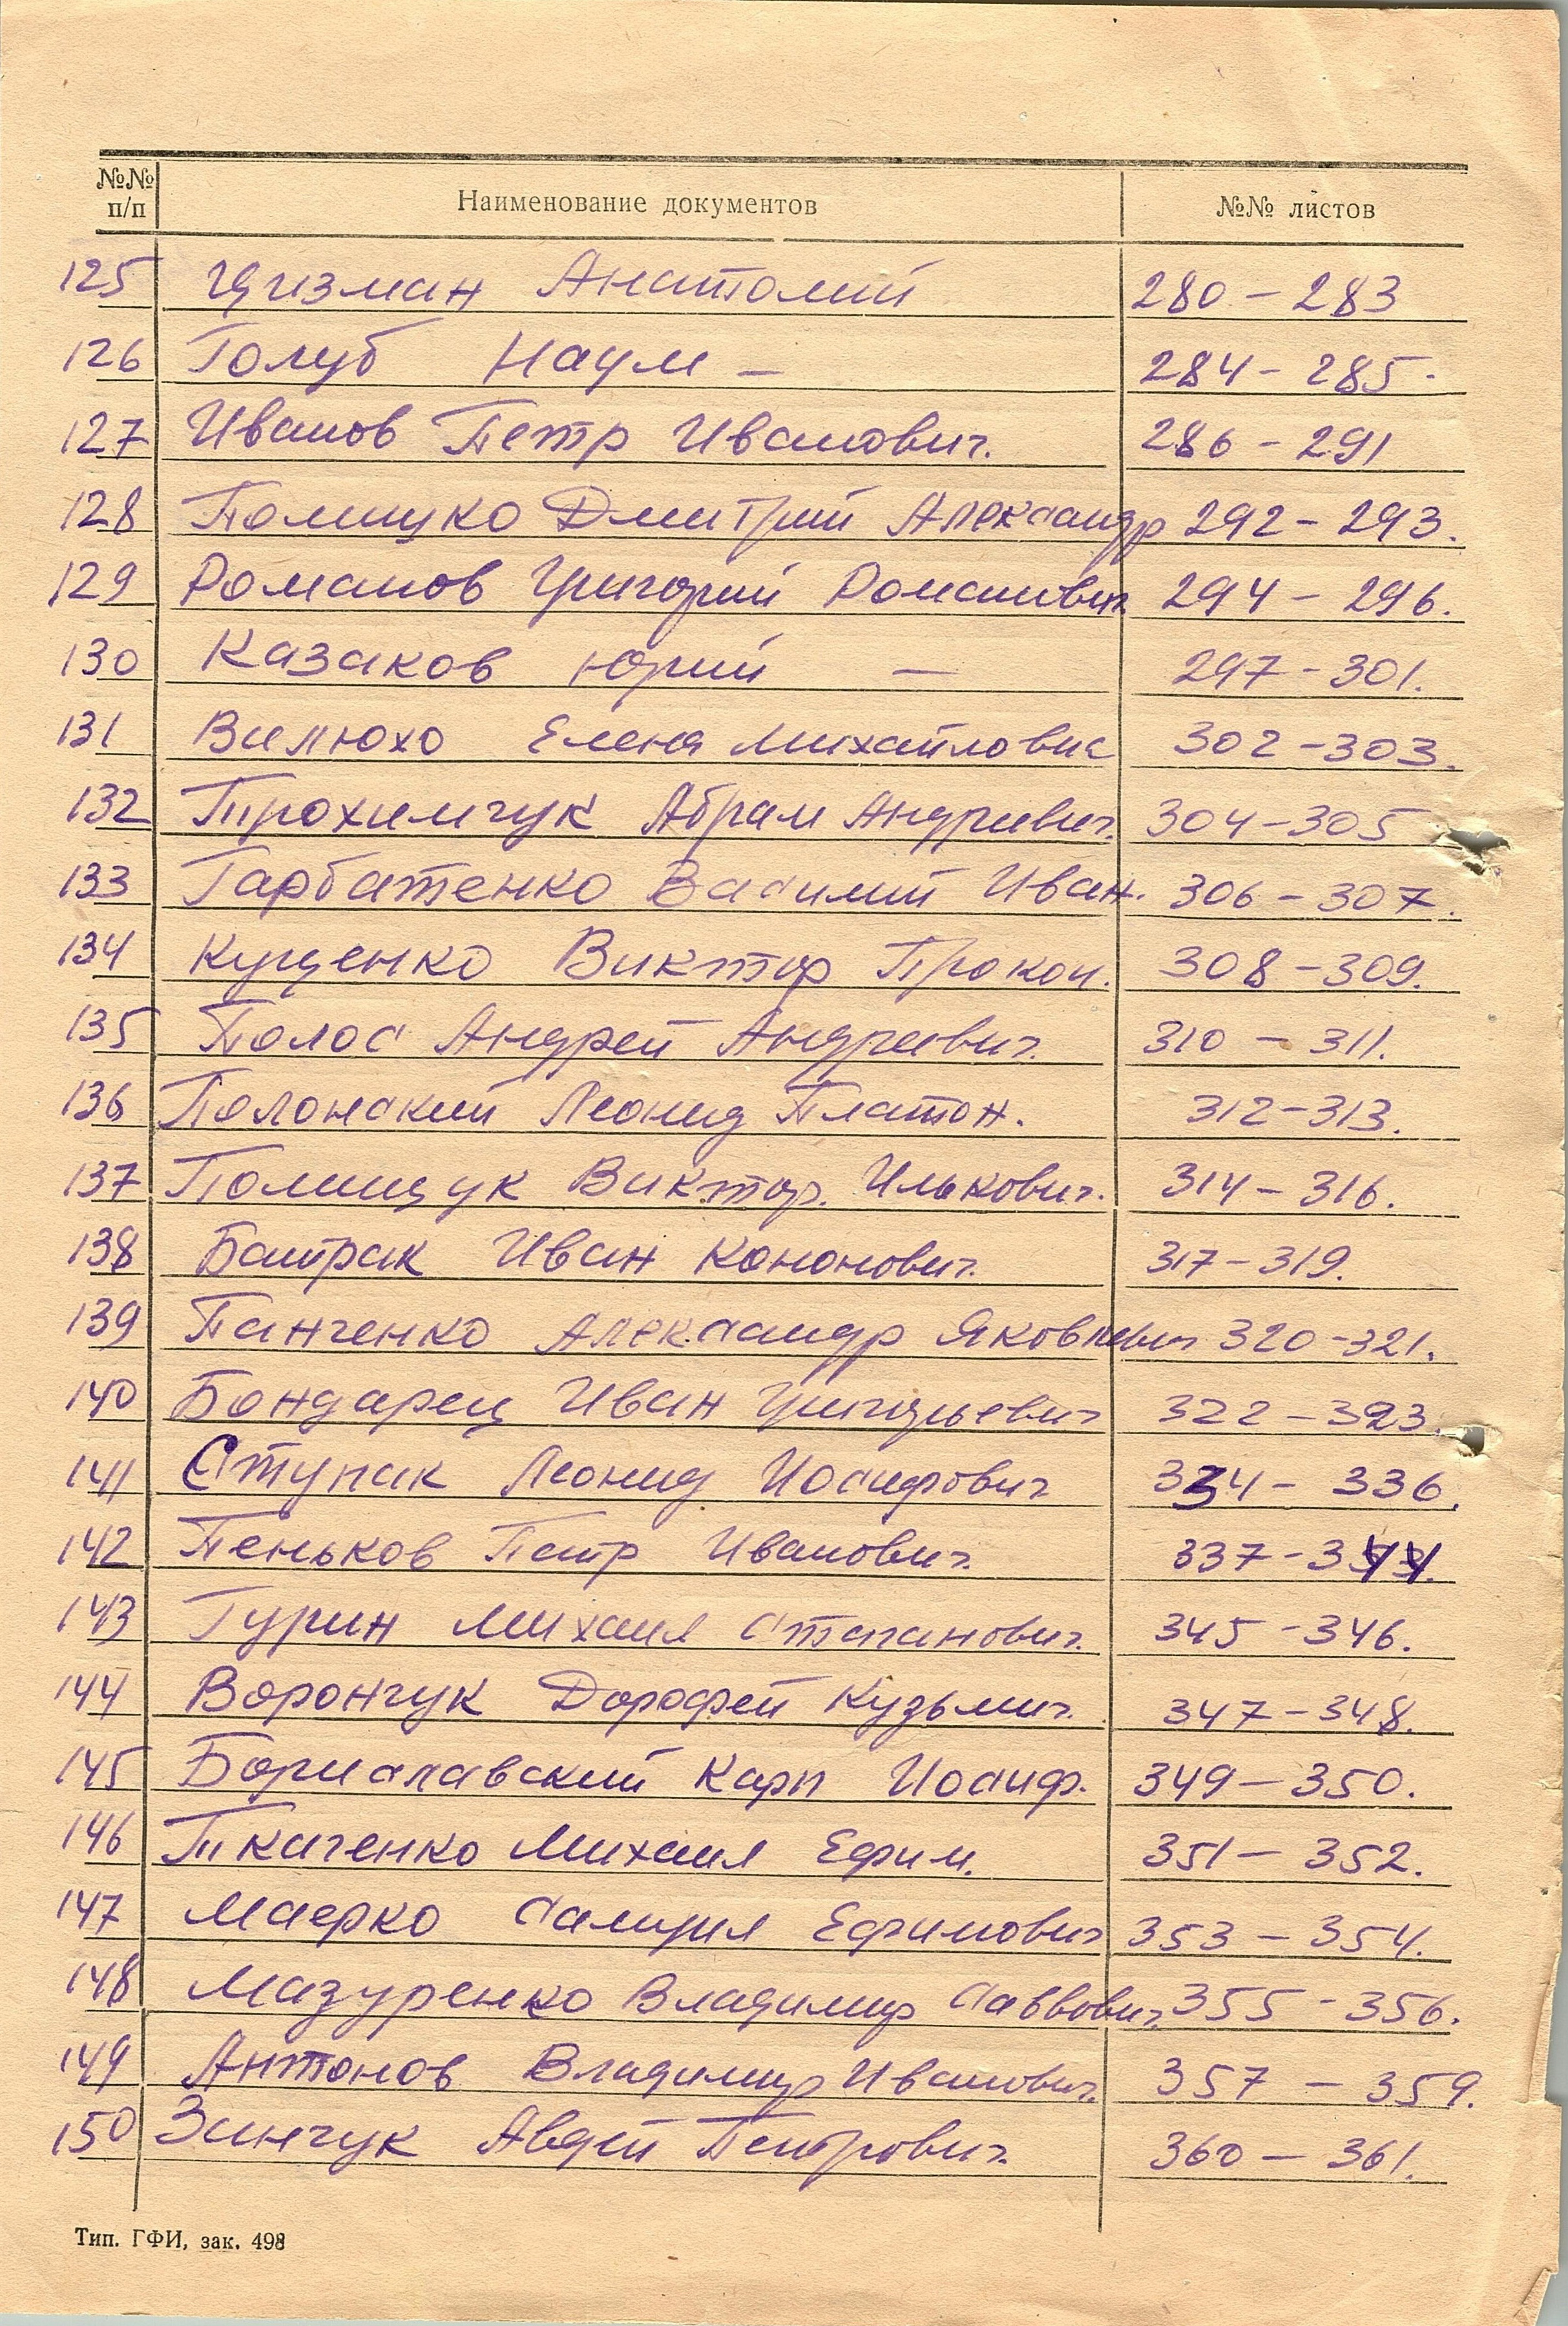 №№ п/п Наименование документов №№ листов
125 Цизман Анатолий 280 – 283
126 Голуб Наум – 284 – 285.
127 Иванов Петр Иванович. 286 – 291
128 Полищуко Дмитрий Александр 292 – 293.
129 Романов Григорий Романович. 294 – 296.
130 Казаков Юрий – 297 – 301.
131 Вилюхо Елена Михайловна 302 – 303.
132 Трохимчук Абрам Андреевич. 304 – 305
133 Гарбатенко Василий Иван. 306 – 307.
134 Кущенко Виктор Прокоп. 308 – 309.
135 Полос Андрей Андреевич. 310 – 311.
136 Полонский Леонид Платон. 312 – 313.
137 Полищук Виктор. Илькович. 314 – 316.
138 Батрак Иван Кононович. 317 – 319.
139 Панченко Александр Яковлевич 320 – 321.
140 Бондарец Иван Григорьевич 322 – 323.
141 Ступак Леонид Иосифович 334 – 336.
142 Пеньков Петр Иванович. 337 – 344.
143 Гурин Михаил Степанович. 345 – 346.
144 Ворончук Дорофей Кузьмич. 347 – 348.
145 Бориславский Карп Иосиф. 349 – 350.
146 Ткаченко Михаил Ефим. 351 – 352.
147 Маерко Самуил Ефимович 353 – 354.
148 Мазуренко Владимир Саввович. 355 – 356.
149 Антонов Владимир Иванович. 357 – 359.
150 Зинчук Авдей Петрович. 360 – 361.
Тип. ГФИ, зак. 498